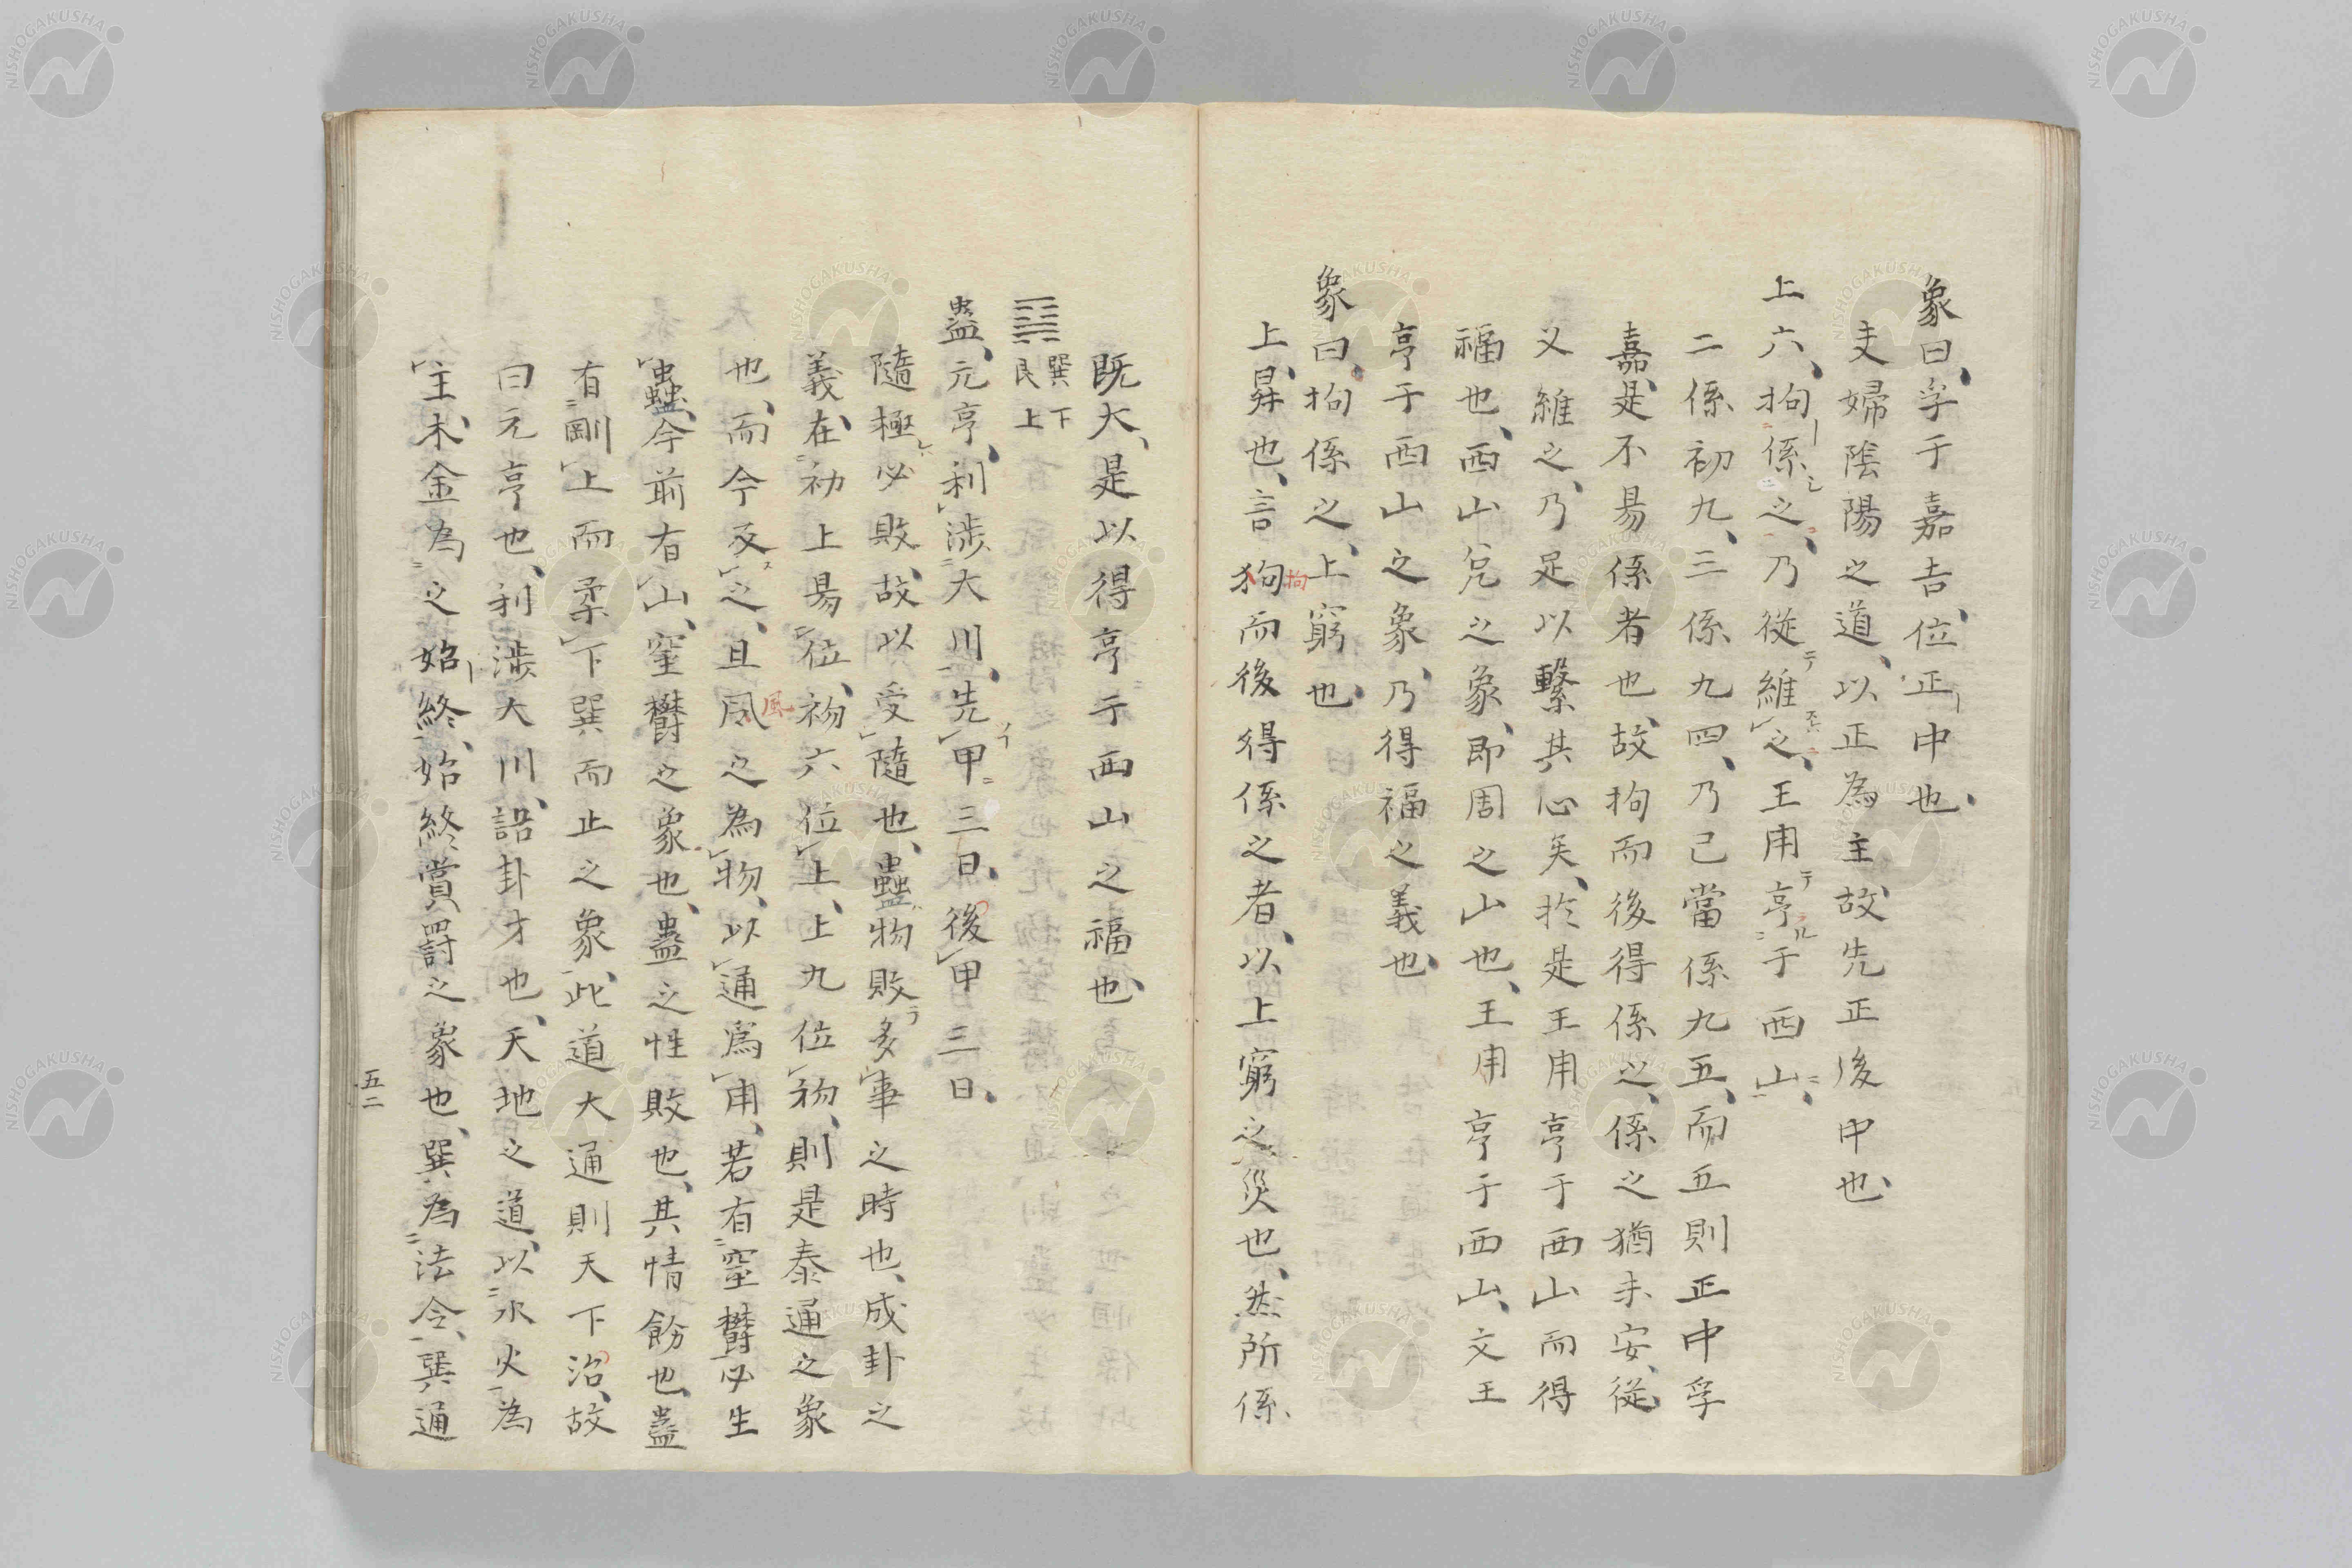 象曰、孚于嘉吉、位正中也、
夫婦陰陽之道、以正為主、故先正後中也、
上六、拘係之、乃從維之、王用亨于西山、
二係初九、三係九四、乃已當係九五、而五則正中孚
嘉、是不易係者也、故拘而後得係之、係之猶未安、從
又維之、乃足以繫其心矣、於是王用亨于西山而得
福也、西山、兌之象、即周之山也、王用亨于西山、文王
亨于西山之象、乃得福之義也、
象曰、拘係之、上窮也、
上昇也、言狥而後得係之者、以上窮之災也、然所係
拘
既大、是以得亨于西山之福也、
巽下
艮上
蠱、元亨、利涉大川、先甲三日、後甲三日、
隨極必敗、故以受隨也、蠱物敗多事之時也、成卦之
義在初上易位、初六位上、上九位初、則是泰通之象
也、而今反之、且凮之為物、以通爲用、若有窒欝必生
風
蟲、今前有山、窒欝之象也、蠱之性敗也、其情飭也、蠱
有剛上而柔下巽而止之象、此道大通則天下治、故
曰元亨也、利涉大川、語卦才也、天地之道、以水火為
主、木金為之始終、始終賞罸之象也、巽為法令、巽通
五二
NISHOGAKUSHA